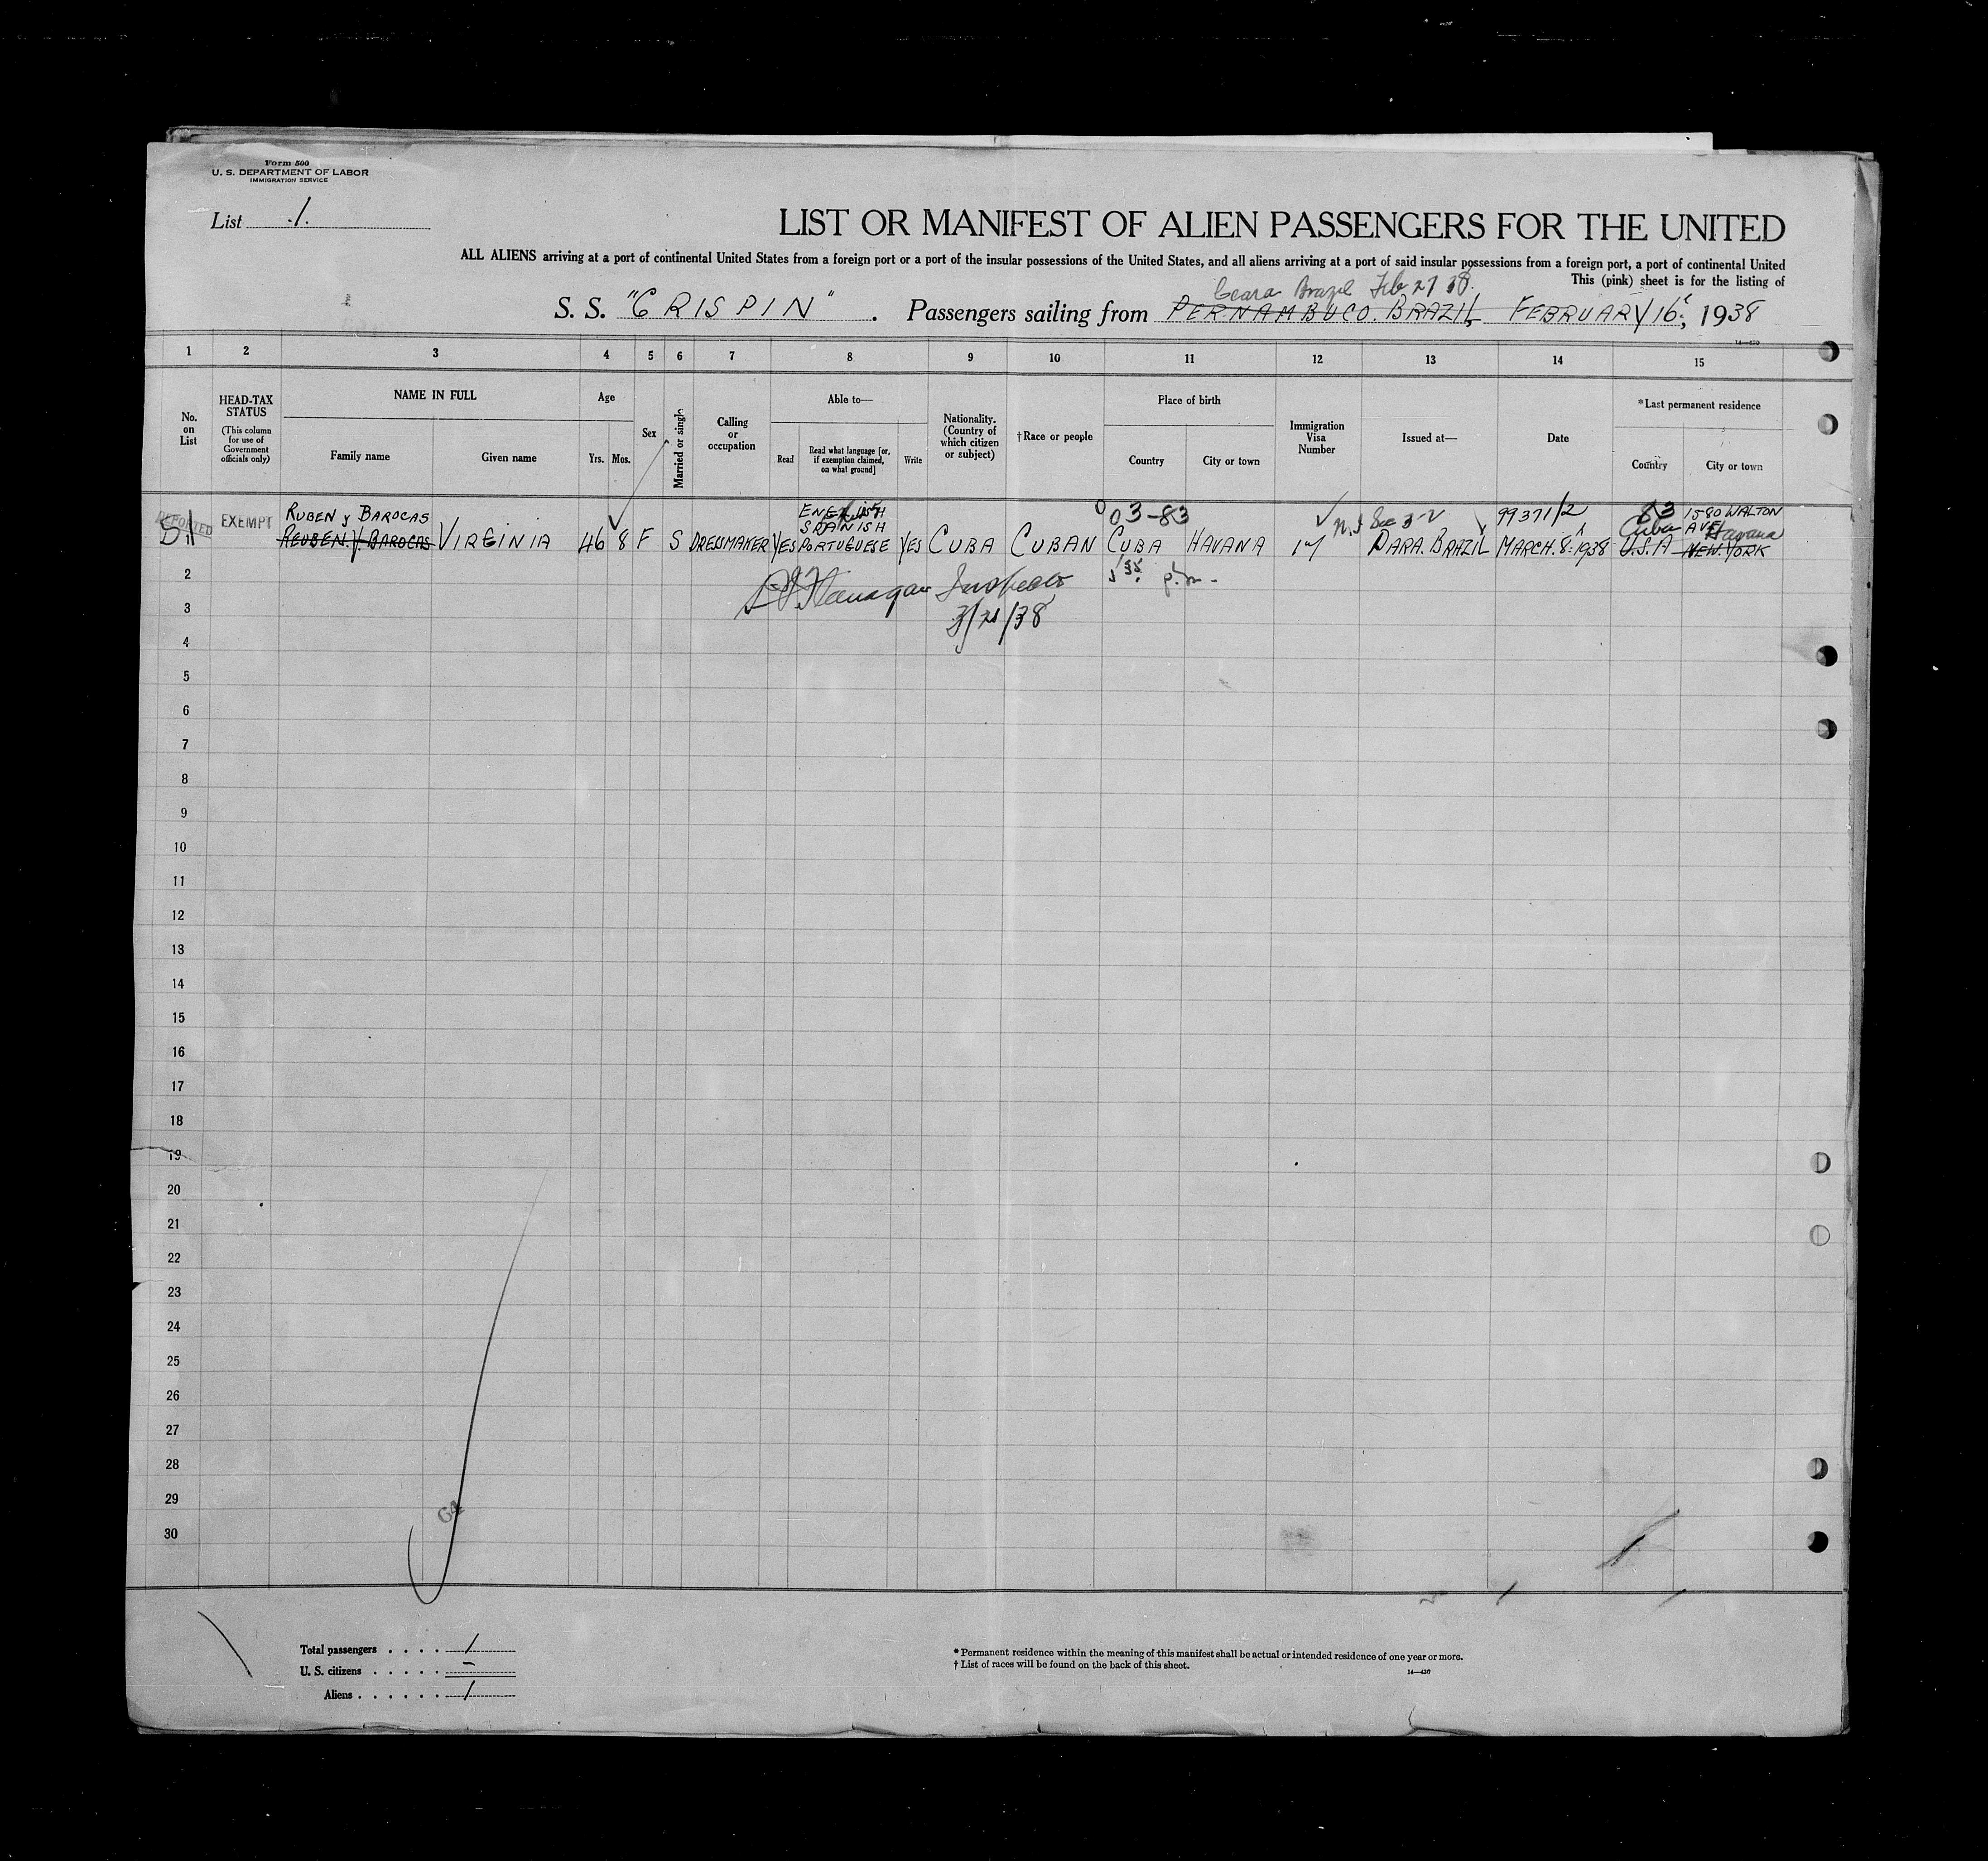 Form 500
U. S. DEPARTMENT OF LABOR
IMMIGRATION SERVICE
List 1.
LIST OR MANIFEST OF ALIEN PASSENGERS FOR THE UNITED
ALL ALIENS arriving at a port of continental United States from a foreign port or a port of the insular possessions of the United States, and all aliens arriving at a port of said insular possessions from a foreign port, a port of continental United
This (pink) sheet is for the listing of
Ceara Brazil Feb 27 38.
S. S. "CRISPIN". Passengers sailing from PERNAMBUCO. BRAZIL, FEBRUARY 16, 1938
1 2 3 4 5 6 7 8 9 10 11 12 13 14 15
No. on List
HEAD-TAX STATUS
(This column for use of Government officials only)
NAME IN FULL
Family name
Given name
Age
Yrs. Mos.
Sex
Married or single
Calling or occupation
Able to—
Read
Read what language [or, if exemption claimed, on what ground]
Write
Nationality. (Country of which citizen or subject)
†Race or people
Place of birth
Country
City or town
Immigration Visa Number
Issued at—
Date
*Last permanent residence
Country
City or town
RUBEN y BAROCAS ENGLISH 03-83 99371/2 83 1580 WALTON
DEPORTED EXEMPT SPANISH Cuba AVE. Havana
1 REUBEN. Y. BAROCAS VIRGINIA 46 8 F S DRESSMAKER YES PORTUGUESE YES CUBA CUBAN CUBA HAVANA 17 PARA. BRAZIL MARCH. 8. 1938 U.S.A NEW. YORK
2 Flanagan Inspector p.m.
3 3/21/38
4
5
6
7
8
9
10
11
12
13
14
15
16
17
18
19
20
21
22
23
24
25
26
27
28
29
30
Total passengers . . . . 1
U. S. citizens . . . . . –
Aliens . . . . . . 1
* Permanent residence within the meaning of this manifest shall be actual or intended residence of one year or more.
† List of races will be found on the back of this sheet.
14—430